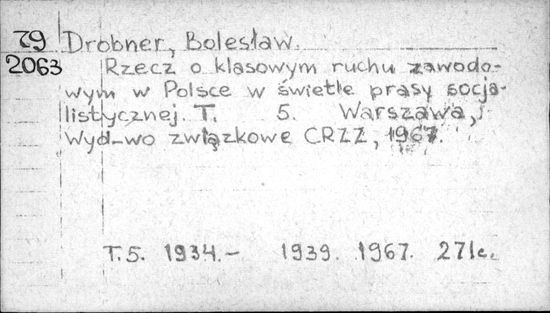 79 Drobner, Bolesław.
2063 Rzecz o klasowym ruchu zawodo-
wym w Polsce w świetle prasy socja-
listycznej. T. 5. Warszawa,
Wyd-wo związkowe CRZZ, 1967.
T.5. 1934.- 1939. 1967. 271c.